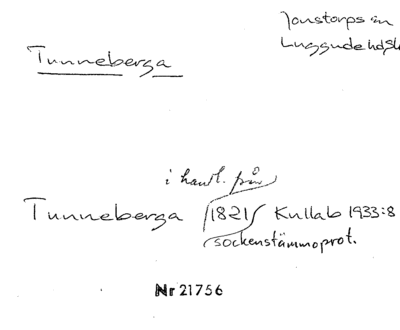 Jonstorps sn
Luggude hd Sk
Tunneberga
i handl. från
Tunneberga 1821 Kullab 1933:8
sockenstämmoprot.
Nr 21756